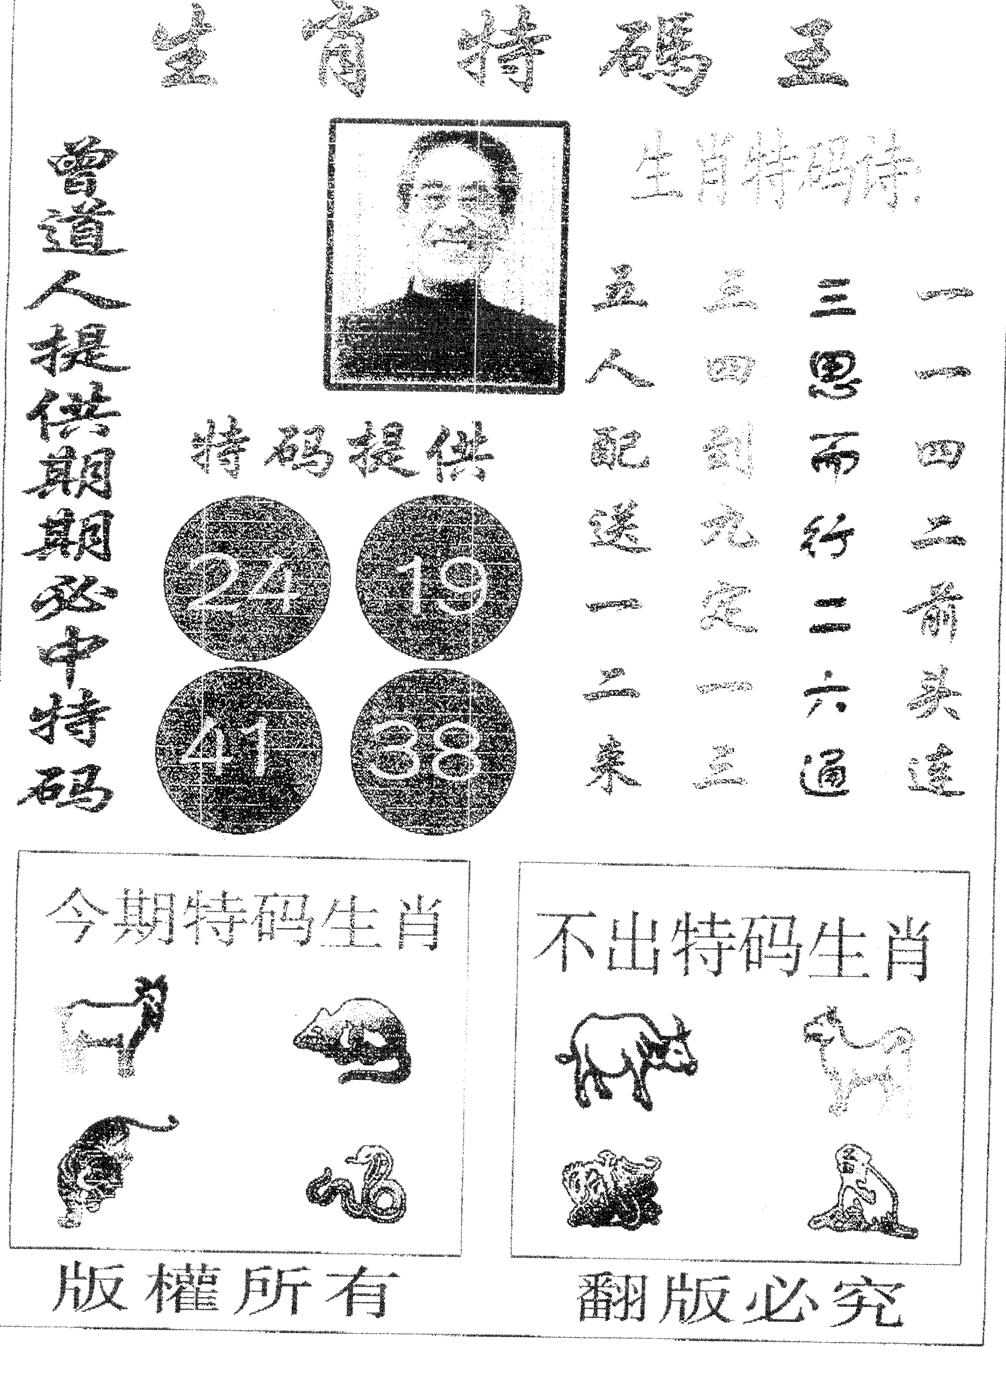 生肖特碼王
曾道人提供期期必中特码
生肖特码诗:
一一四二前头连
三思而行二六通
三四到九定一三
五人配送一二来
特码提供
24 19
41 38
今期特码生肖
不出特码生肖
版權所有
翻版必究